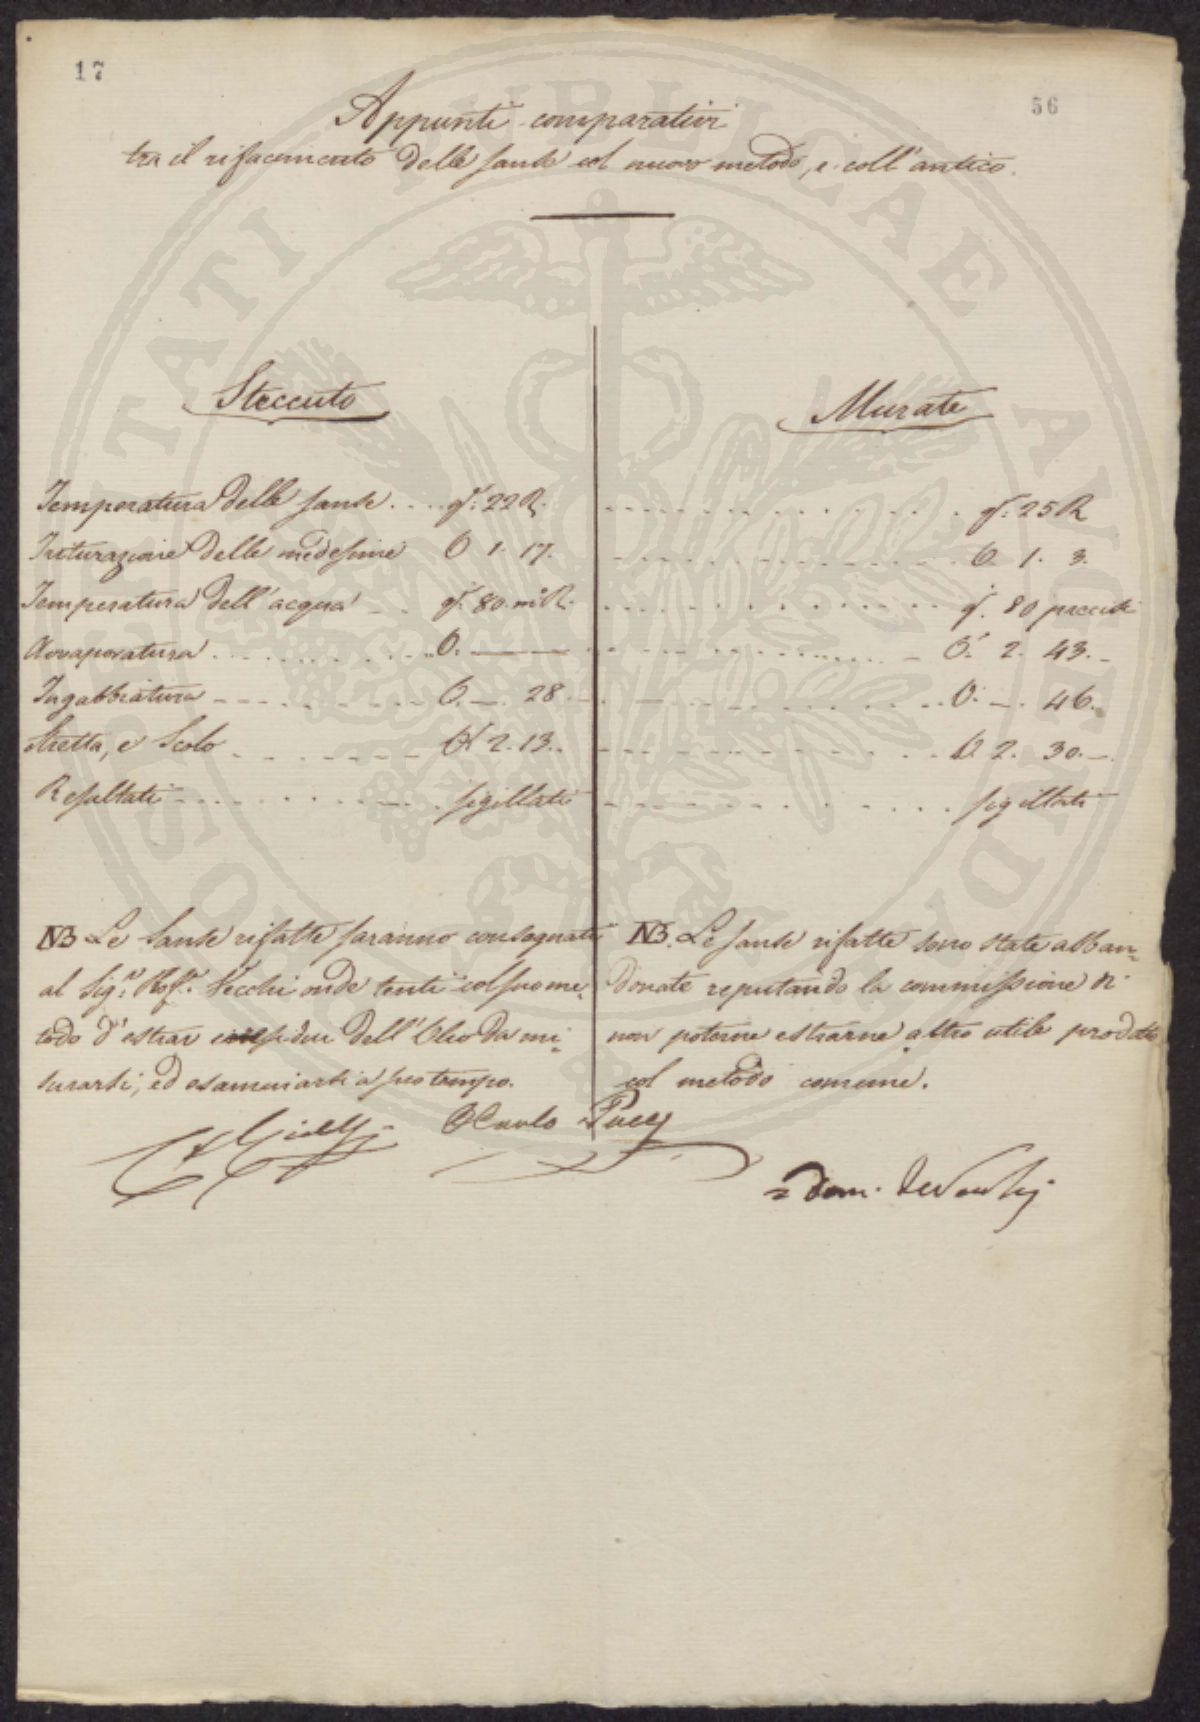 17
56
Appunti comparativi
tra il rifacimento delle sanse col nuovo metodo, e coll'antico.
Steccuto
Murate
Temperatura delle sanse .... g.i 22 R. .......... g.i 25 R
Triturazione delle medesime O 1. 17. .......... O. 1. 3.
Temperatura dell'acqua .. g.i 80. R. .......... g.i 80 precisi
Avvaporatura .......... O. —— .......... O. 2. 43.
Ingabbiatura .......... O. —. 28 .......... O. —. 46.
Stretta, e Scolo .......... O. 2. 13. .......... O. 2. 30. —.
Resultati .......... sigillati .......... sigillati
NB Le Sanse rifatte saranno consegnate
al Sig.r Prof.r Vecchi onde tenti col suo me-
todo d'estrar dell'Olio da mi-
surarsi, ed esaminarsi a suo tempo.
NB. Le sanse rifatte sono state abban-
donate reputando la commissione di
non poterne estrarne altro utile prodotto
col metodo comune.
Carlo Pucci
DIGNITATI PUBLICAE AUGENDAE